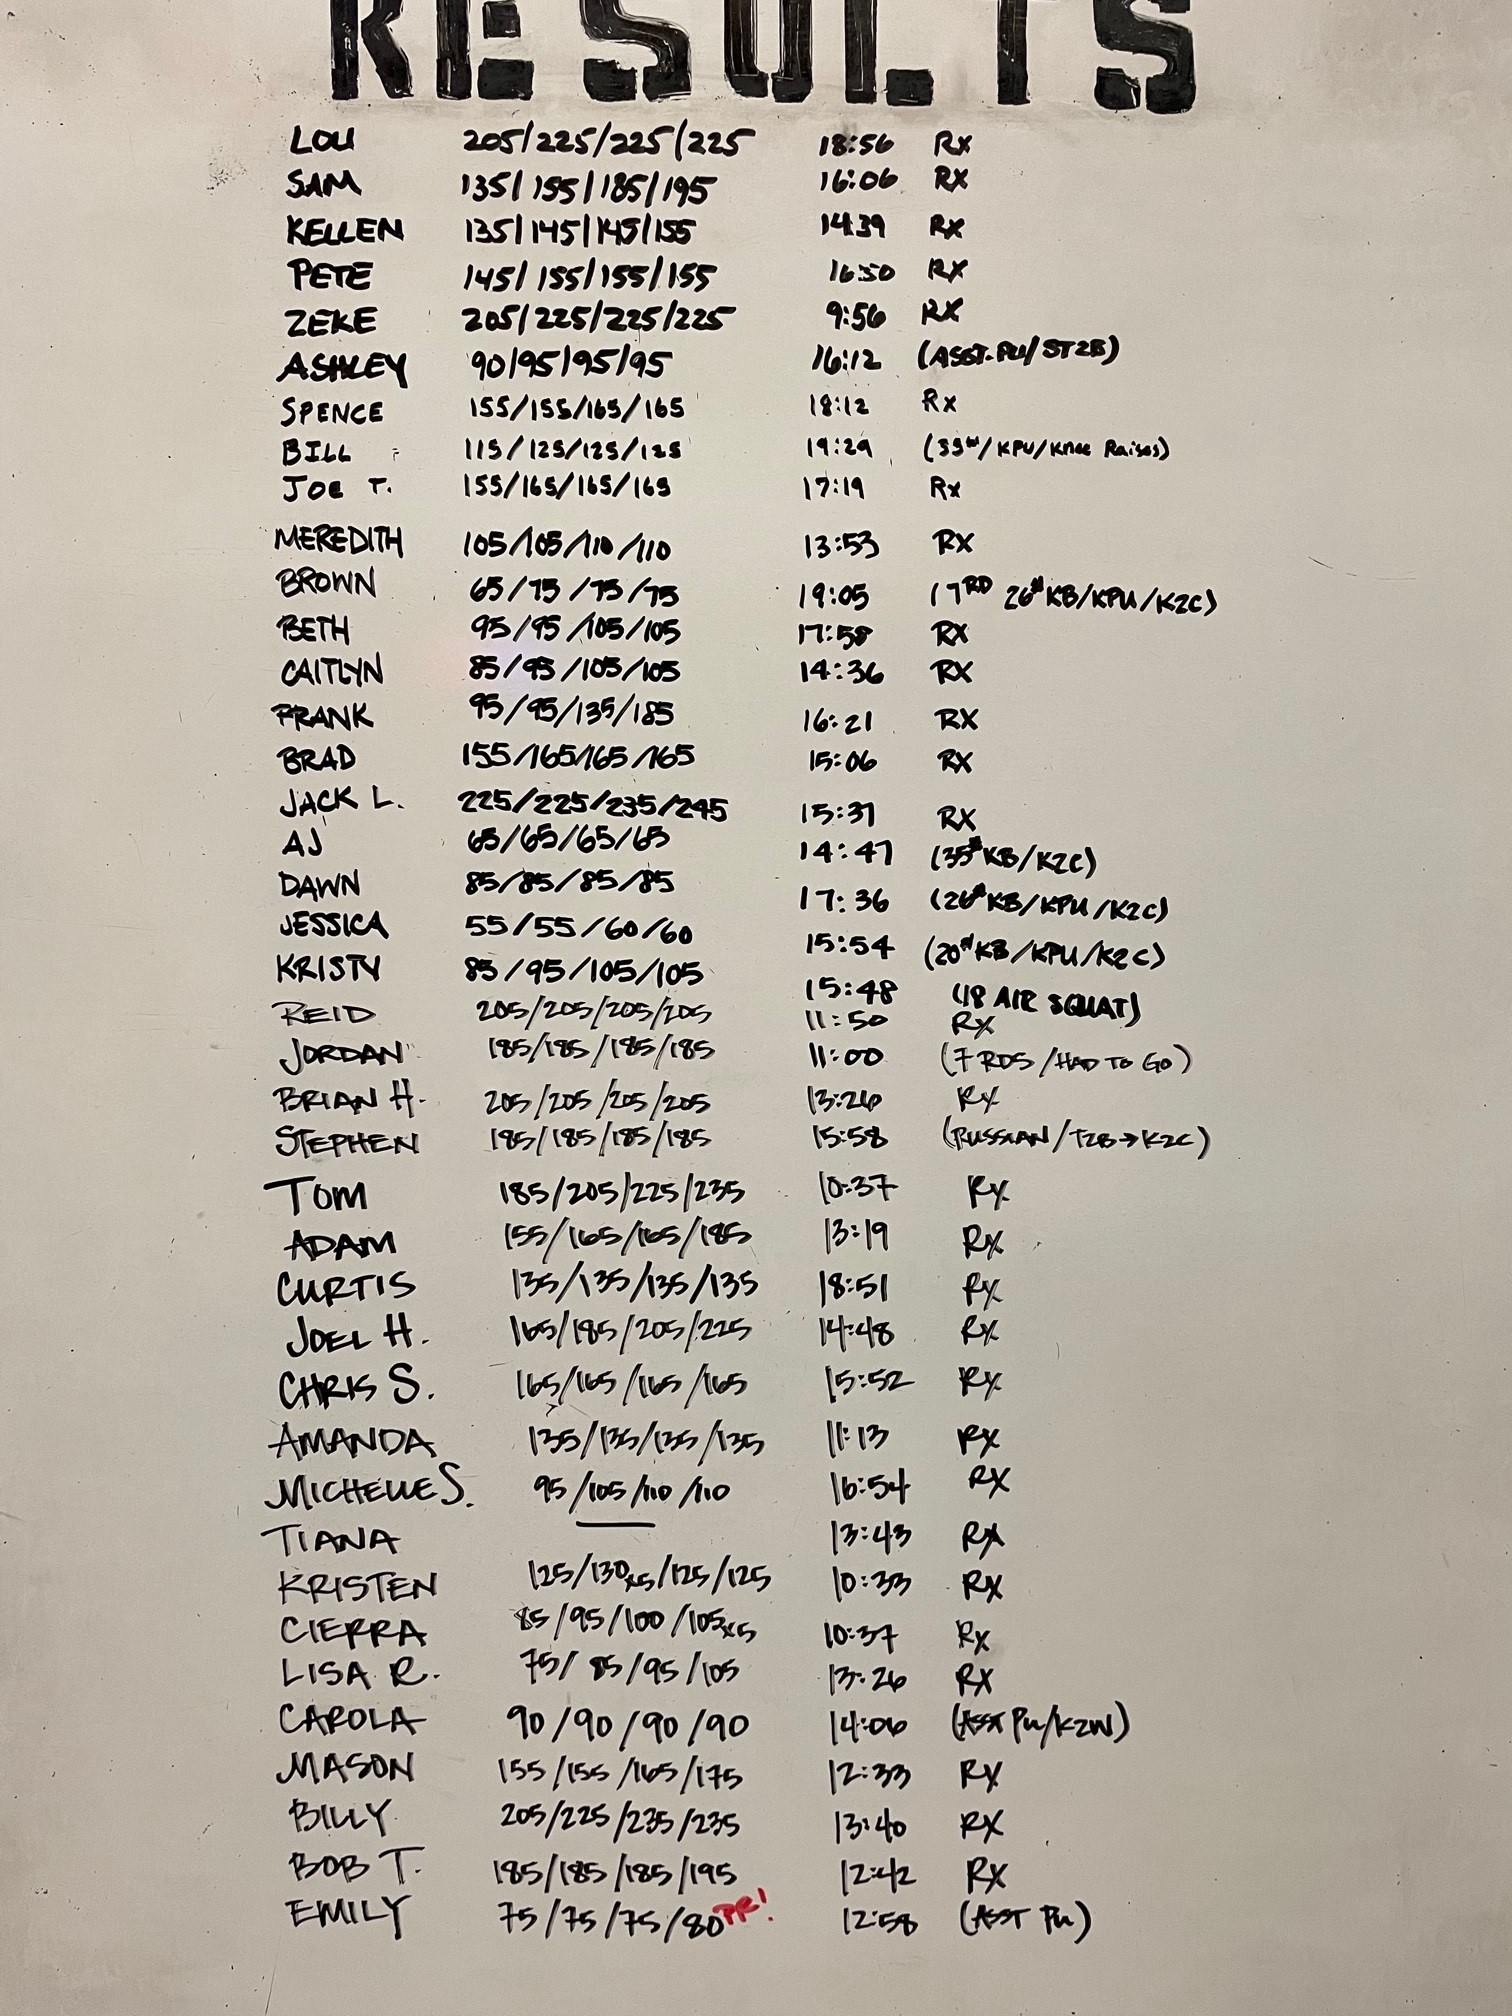 RESULTS
LOU 205/225/225/225 18:56 Rx
SAM 135/155/185/195 16:06 RX
KELLEN 135/145/145/155 14:39 RX
PETE 145/155/155/155 16:50 RX
ZEKE 205/225/225/225 9:56 RX
ASHLEY 90/95/95/95 16:12 (ASST.PU/ST2B)
SPENCE 155/155/165/165 18:12 Rx
BILL 115/125/125/125 19:29 (35#/KPU/Knee Raises)
JOE T. 155/165/165/165 17:19 Rx
MEREDITH 105/105/110/110 13:53 RX
BROWN 65/75/75/75 19:05 (7RD 26#KB/KPU/K2C)
BETH 95/95/105/105 17:58 RX
CAITLYN 85/95/105/105 14:36 RX
FRANK 95/95/135/185 16:21 RX
BRAD 155/165/165/165 15:06 RX
JACK L. 225/225/235/245 15:37 RX
AJ 65/65/65/65 14:47 (35#KB/K2C)
DAWN 85/85/85/85 17:36 (26#KB/KPU/K2C)
JESSICA 55/55/60/60 15:54 (20#KB/KPU/K2C)
KRISTY 85/95/105/105 15:48 (18 AIR SQUAT)
REID 205/205/205/205 11:50 RX
JORDAN 185/185/185/185 11:00 (7 RDS/HAD TO GO)
BRIAN H. 205/205/205/205 13:26 RX
STEPHEN 185/185/185/185 15:58 (RUSSIAN/T2B→K2C)
TOM 185/205/225/235 10:37 RX
ADAM 155/165/165/185 13:19 RX
CURTIS 135/135/135/135 18:51 RX
JOEL H. 165/185/205/225 14:48 RX
CHRIS S. 165/165/165/165 15:52 RX
AMANDA 135/135/135/135 11:13 RX
MICHELLE S. 95/105/110/110 16:54 RX
TIANA — 13:43 RX
KRISTEN 125/130x5/125/125 10:33 RX
CIERRA 85/95/100/105x5 10:37 RX
LISA R. 75/85/95/105 13:26 RX
CAROLA 90/90/90/90 14:06 (ASST PU/K2W)
MASON 155/155/165/175 12:33 RX
BILLY 205/225/235/235 13:40 RX
BOB T. 185/185/185/195 12:42 RX
EMILY 75/75/75/80 PR! 12:58 (ASST PU)